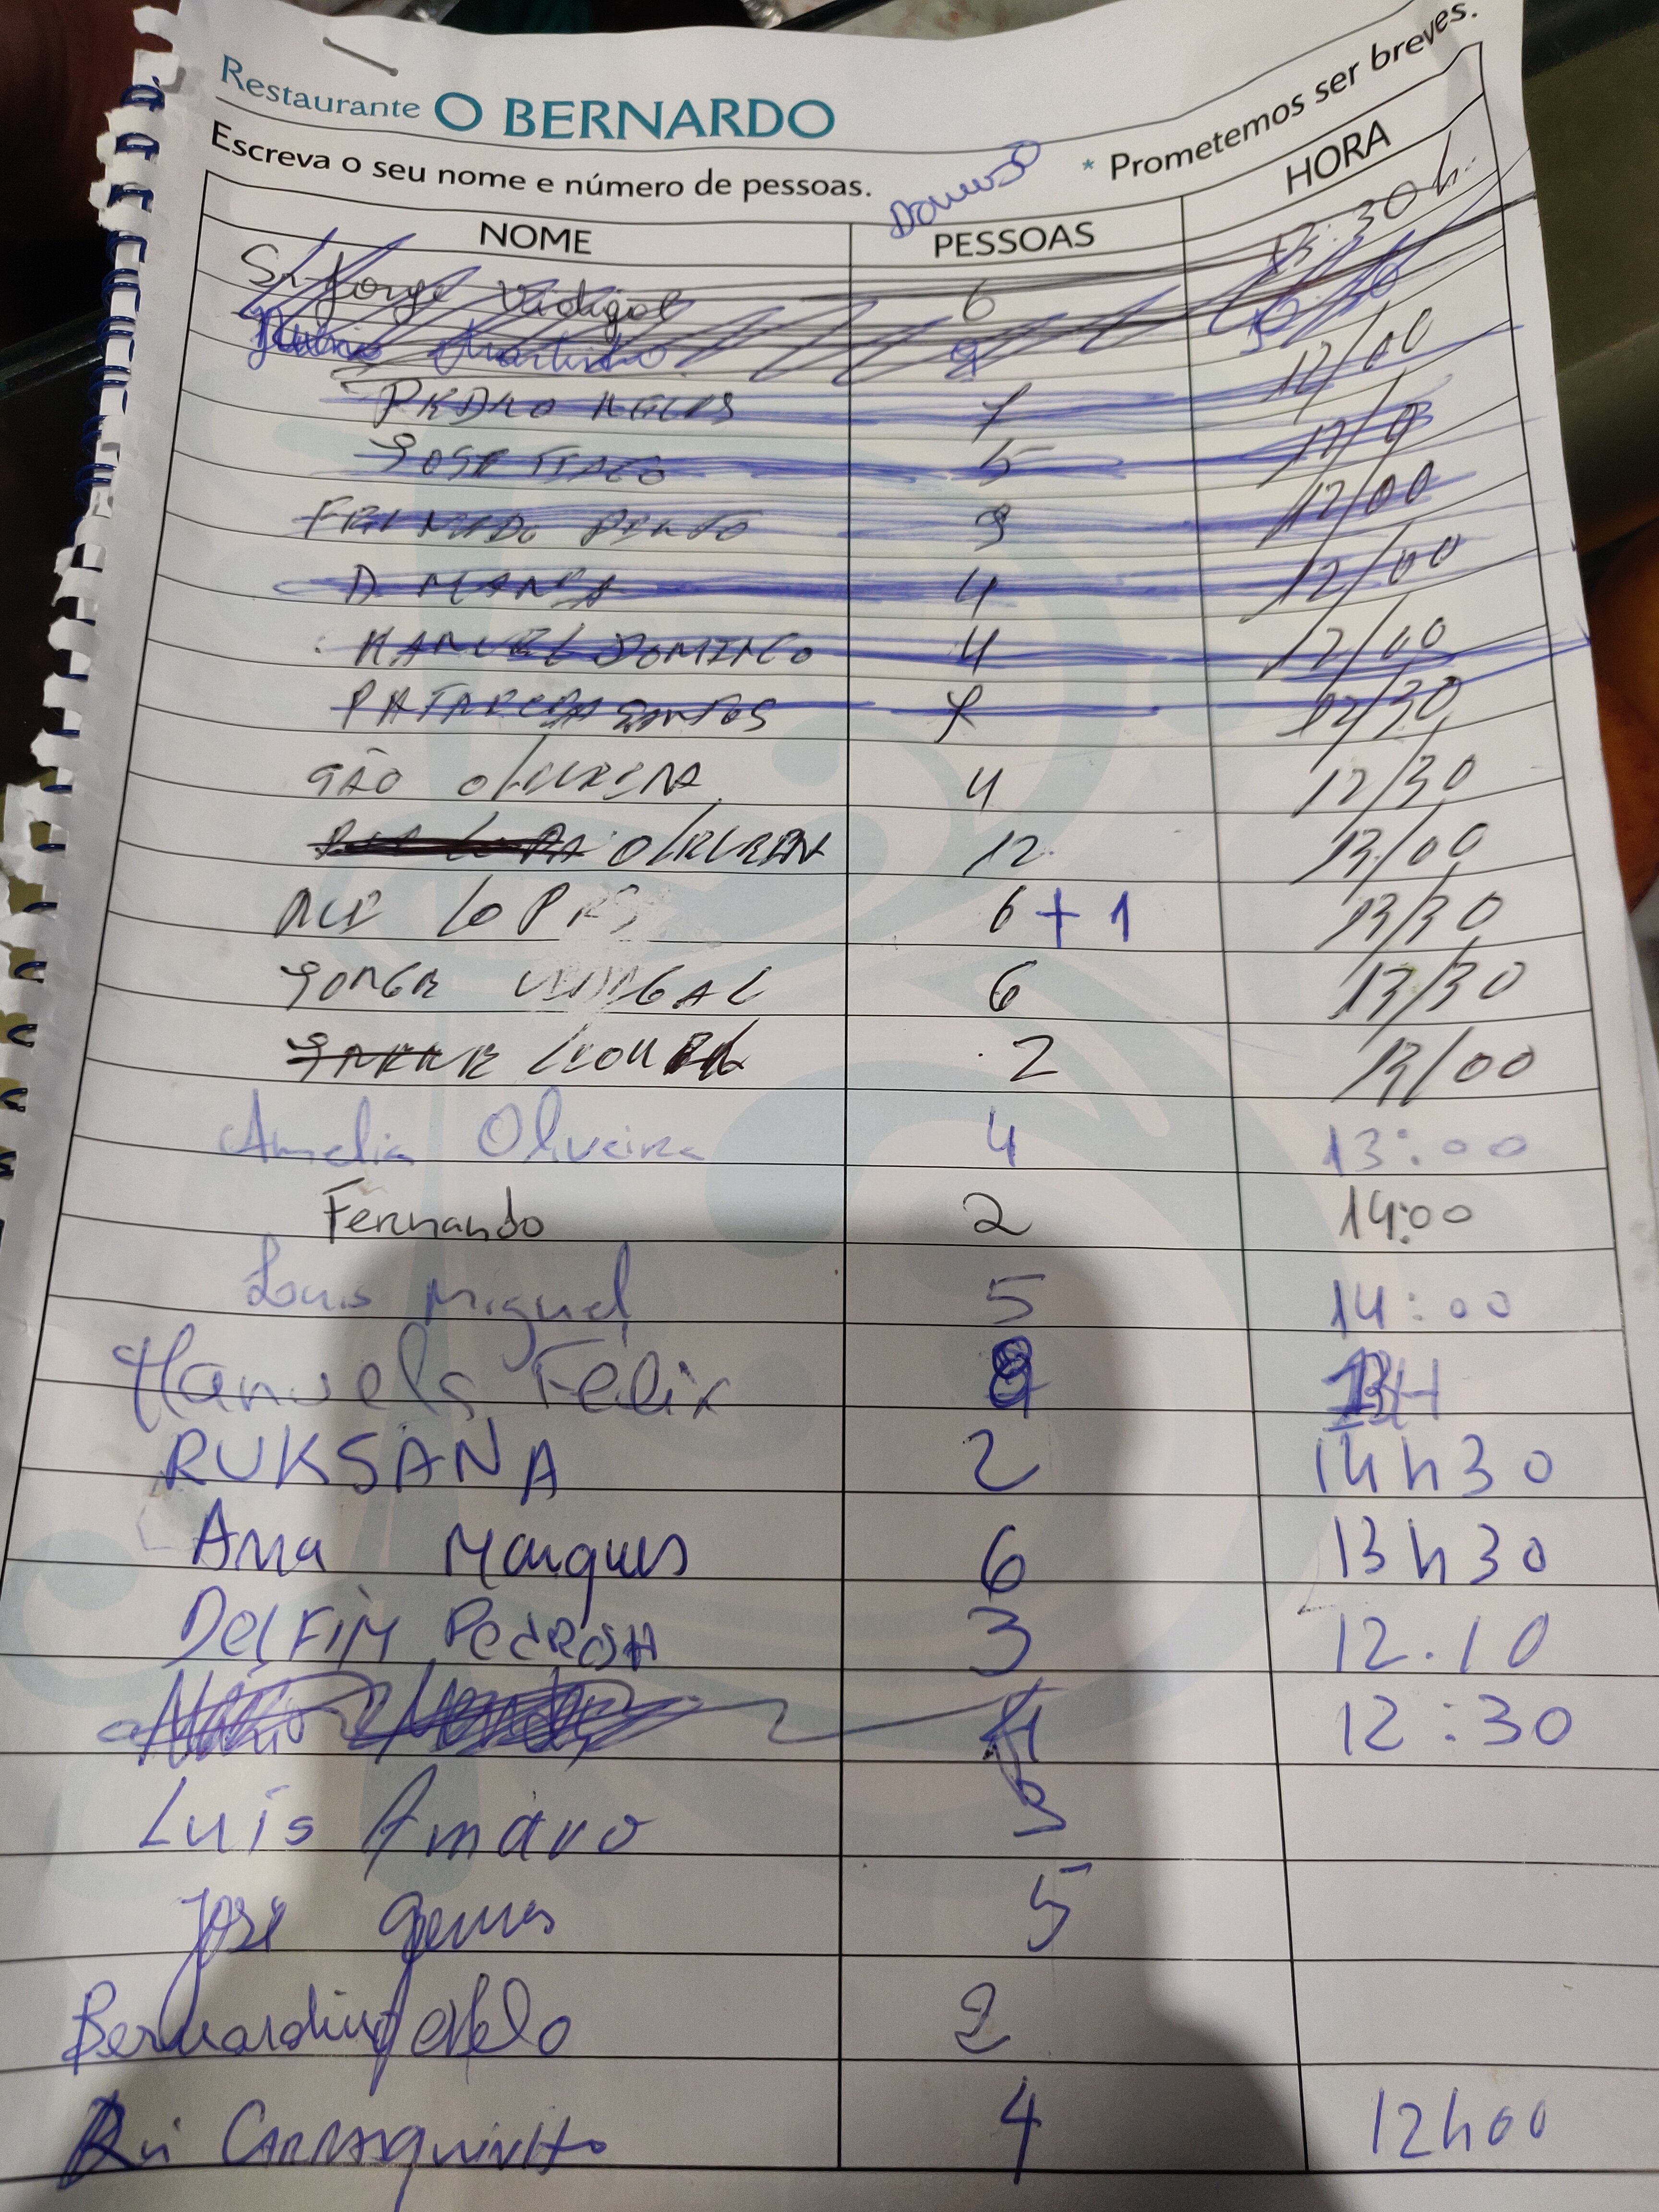 Restaurante O BERNARDO
Escreva o seu nome e número de pessoas.
* Prometemos ser breves.
NOME PESSOAS HORA
Sr. Jorge Vidigal 6 13:30h
Martinho
PEDRO 7 12/00
JOSE 5
PINTO 3 12/00
D. MANEA 4 12/00
MANUEL DOMINGO 4 12/00
SANTOS 12/30
OLIVEIRA 4 12/30
OLIVEIRA 12 13/00
RUI LOPES 6 + 1 13/30
JORGE VIDIGAL 6 13/30
2 13/00
Amelia Oliveira 4 13:00
Fernando 2 14:00
Luis Miguel 5 14:00
Manuela Félix 13H
RUKSANA 2 14h30
Ana Marques 6 13h30
DELFIM PEDROSA 3 12.10
12:30
Luís Amaro
José Gomes 5
Bernardino 2
Rui CARRASQUINHO 4 12h00